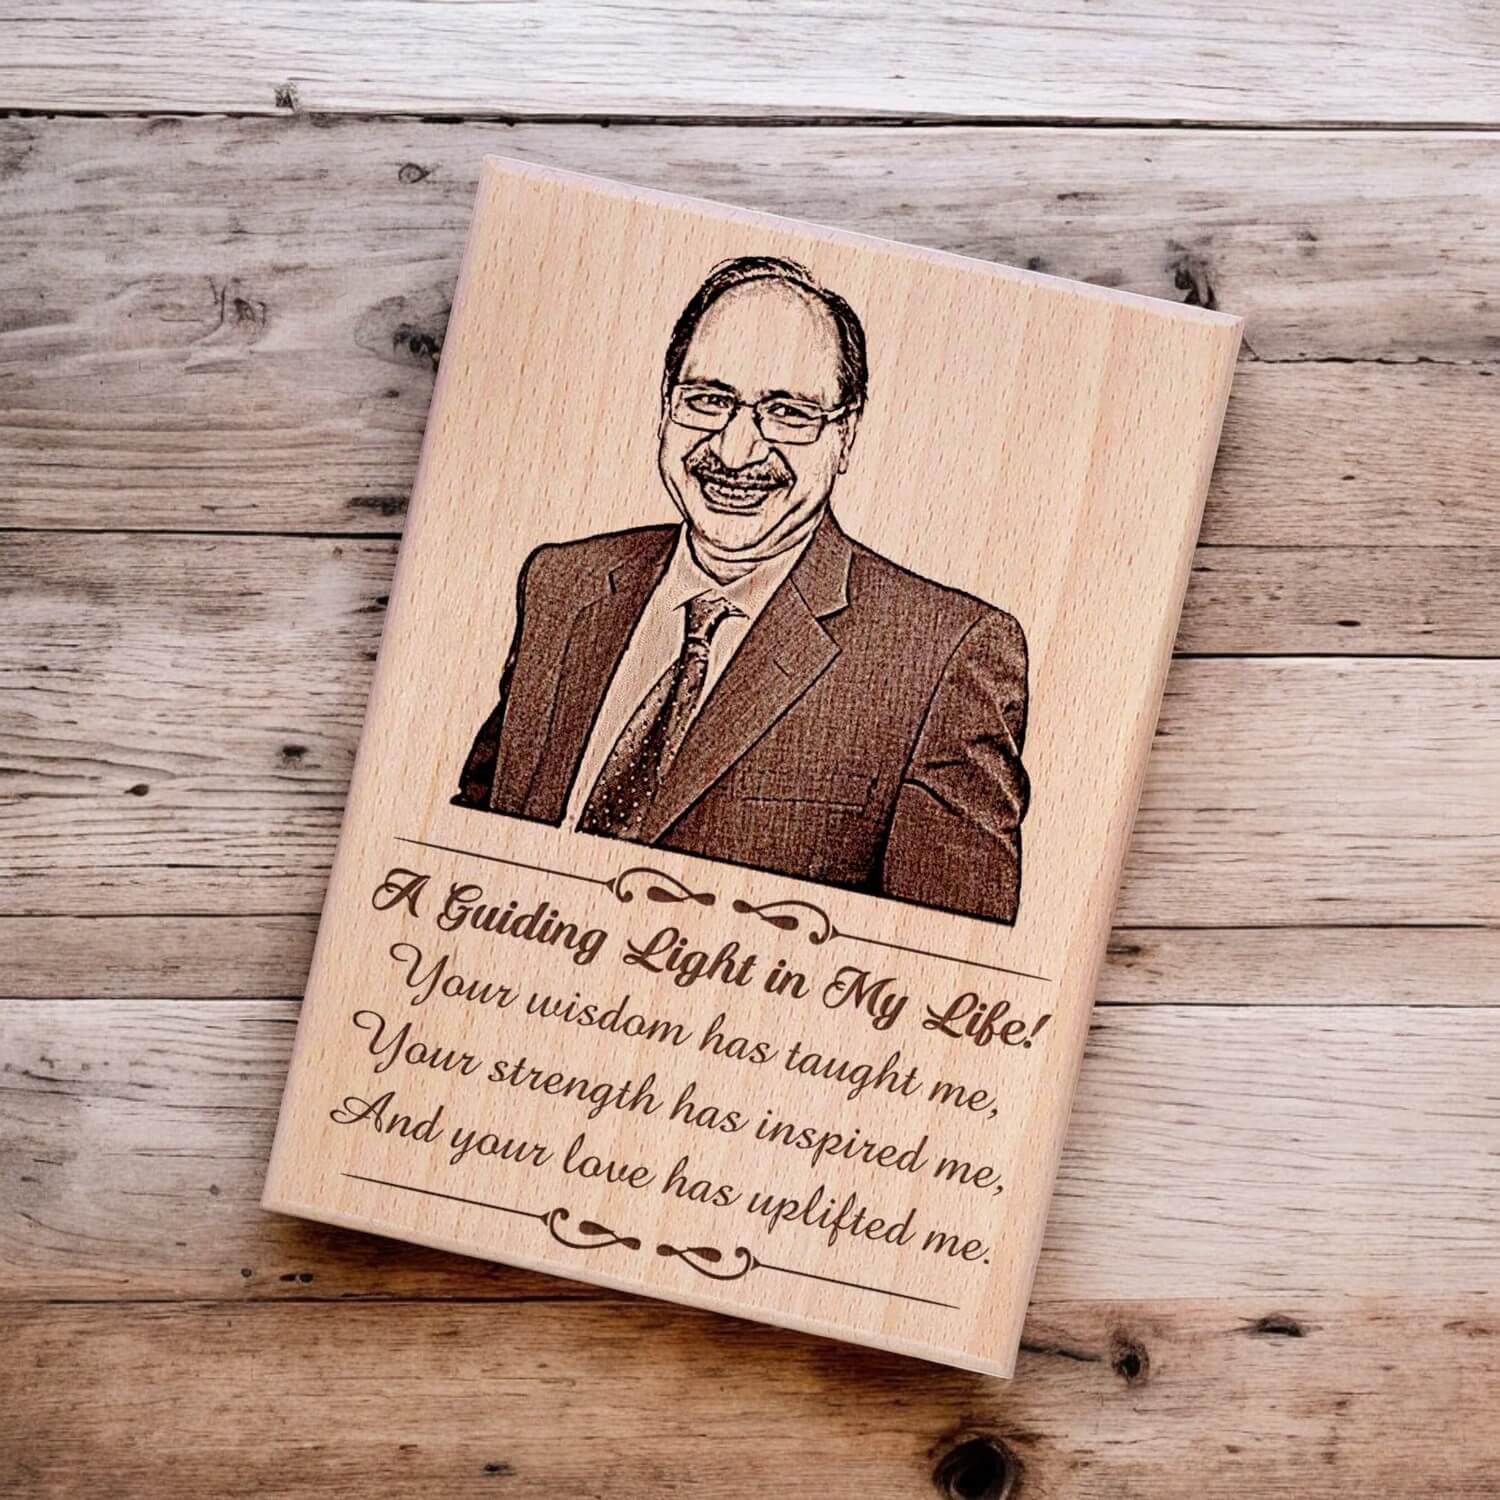 A Guiding Light in My Life!
Your wisdom has taught me,
Your strength has inspired me,
And your love has uplifted me.